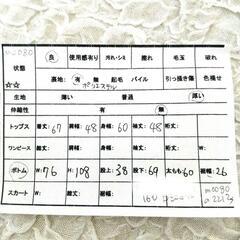 m0080
状態 良 使用感有り 汚れ・シミ 擦れ 毛玉 破れ
☆☆ 裏地: 有 無 起毛 パイル 引っ掻き傷 色褪せ
ポリエステル
生地 薄い 普通 厚い
伸縮性 有 無
トップス 着丈: 67 肩幅: 48 身幅: 60 袖丈: 48 裄丈:
ワンピース 着丈: 肩幅: 身幅: 袖丈: 裄丈:
ボトム W: 76 H: 108 股上: 38 股下: 69 太もも: 60 裾幅: 26
スカート W: 総丈: H: 裾幅:
m0080